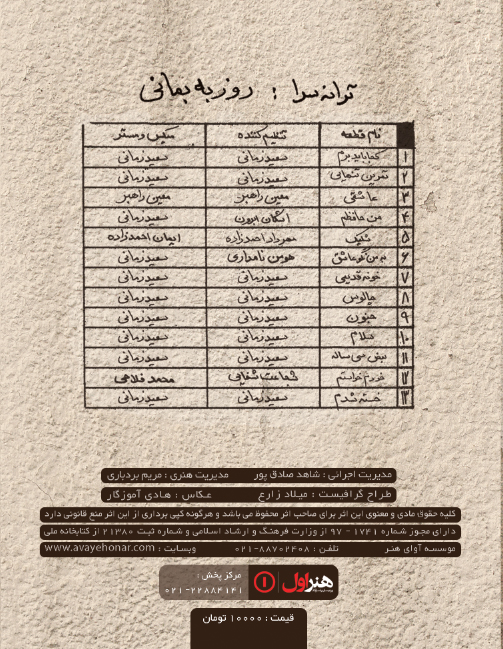 ترانه سرا : روزبه بمانی
نام قطعه تنظیم کننده میکس و مستر
۱ کجا باید برم سعید زمانی سعید زمانی
۲ تمرین تنهایی سعید زمانی سعید زمانی
۳ عاشقی معین راهبر معین راهبر
۴ من حافظم سعید زمانی
۵ شیک مهرداد احمدزاده ایمان احمدزاده
۶ هومن نامداری سعید زمانی
۷ خونه قدیمی سعید زمانی سعید زمانی
۸ چالوس سعید زمانی سعید زمانی
۹ جنون سعید زمانی سعید زمانی
۱۰ سلام سعید زمانی سعید زمانی
۱۱ نبض سی ساله سعید زمانی سعید زمانی
۱۲ خودم خواستم محمد فلاحی
۱۳ خسته شدم سعید زمانی سعید زمانی
مدیریت اجرائی : شاهد صادق پور مدیریت هنری : مریم بردباری
طراح گرافیست : میلاد زارع عکاس : هادی آموزگار
کلیه حقوق مادی و معنوی این اثر برای صاحب اثر محفوظ می باشد و هرگونه کپی برداری از این اثر منع قانونی دارد
دارای مجوز شماره ۱۷۴۱ - ۹۷ از وزارت فرهنگ و ارشاد اسلامی و شماره ثبت ۲۱۳۸۰ از کتابخانه ملی
موسسه آوای هنر تلفن : ۸۸۷۰۲۴۰۸-۰۲۱ وبسایت : www.avayehonar.com
هنر اول ۱ مرکز پخش :
۰۲۱-۲۲۸۸۴۱۴۱
قیمت : ۱۰۰۰۰ تومان